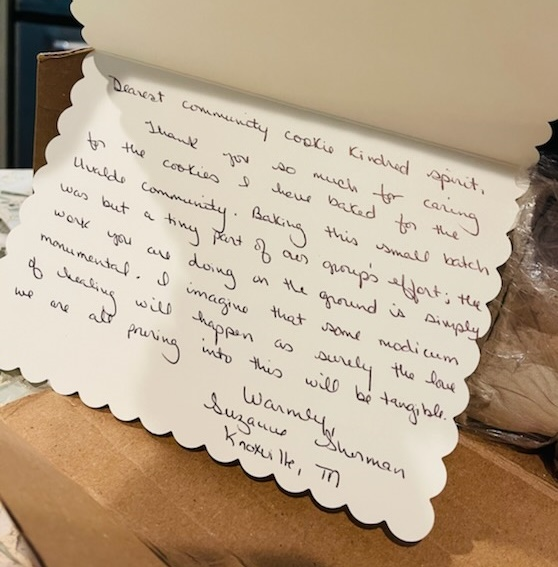 Dearest community cookie Kindred spirit,
Thank you so much for caring
for the cookies I have baked for the
Uvalde Community. Baking this small batch
was but a tiny part of our group's effort; the
work you are doing on the ground is simply
monumental. I imagine that some modicum
of healing will happen as surely the love
we are all pouring into this will be tangible.
Warmly,
Suzanne Sherman
Knoxville, TN